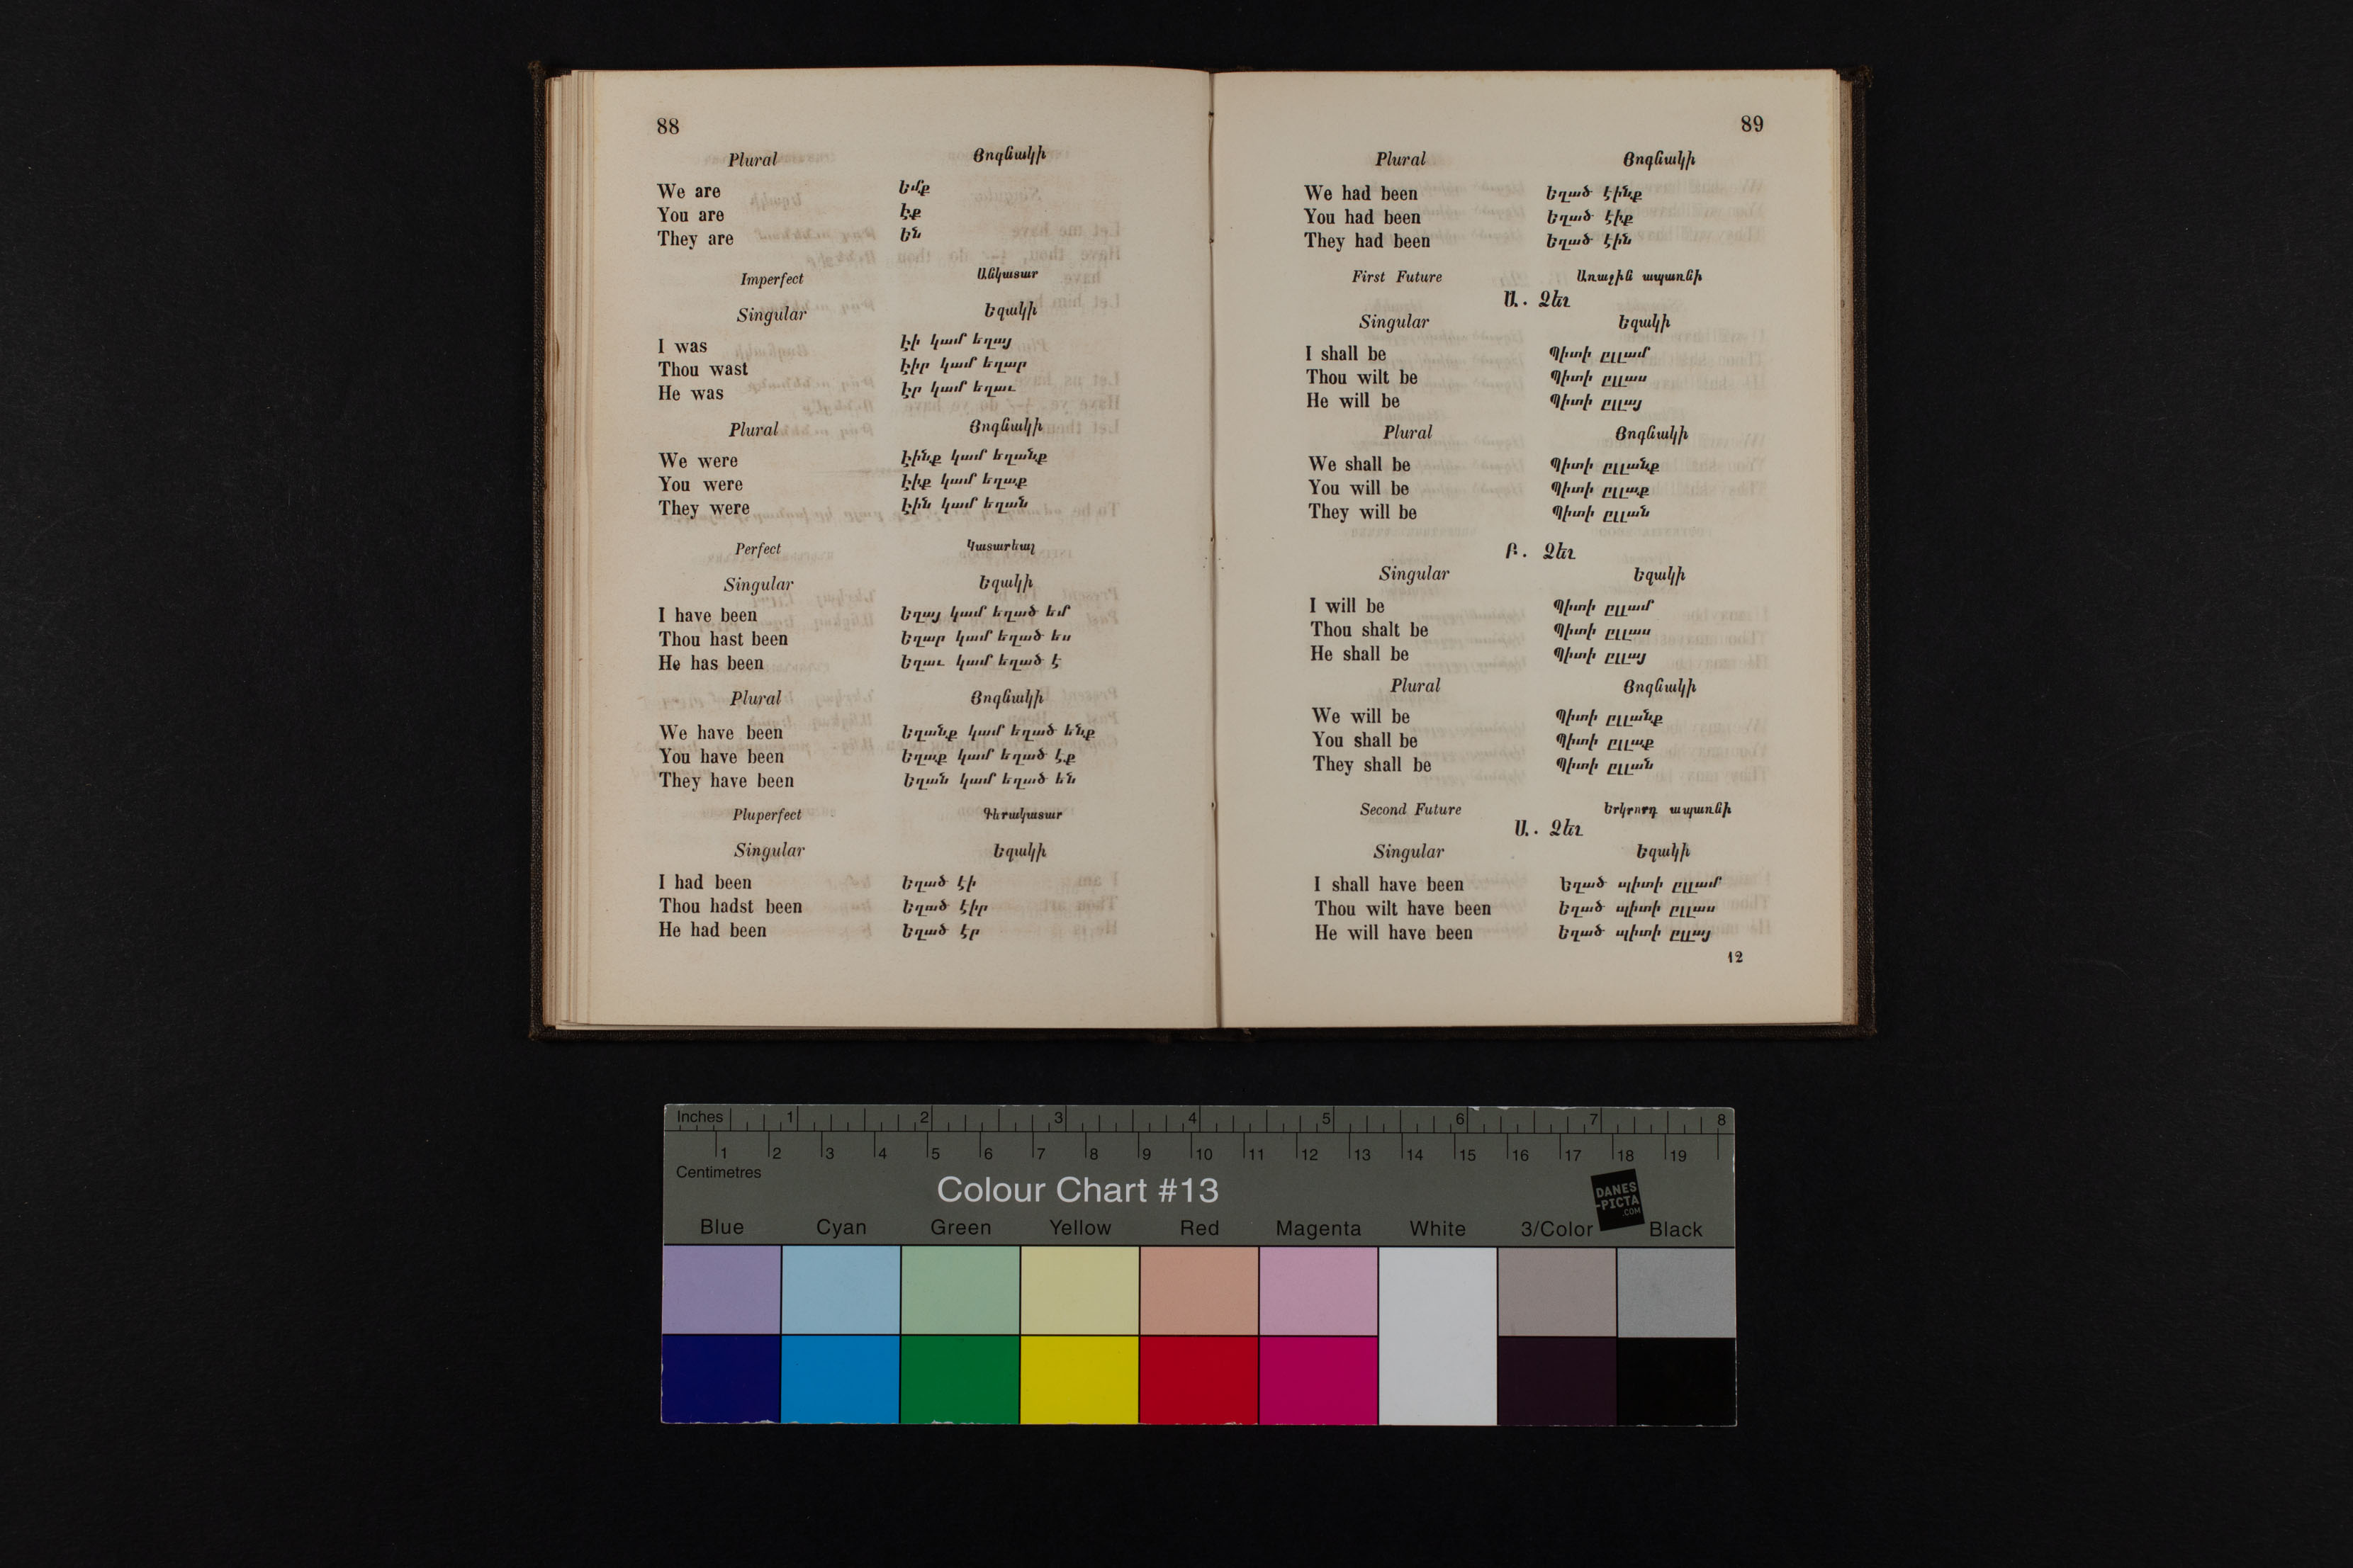 88
Plural Յոգնակի
We are Եմք
You are Էք
They are Են
Imperfect Անկատար
Singular Եզակի
I was Էի կամ եղայ
Thou wast Էիր կամ եղար
He was Էր կամ եղաւ
Plural Յոգնակի
We were Էինք կամ եղանք
You were Էիք կամ եղաք
They were Էին կամ եղան
Perfect Կատարեալ
Singular Եզակի
I have been Եղայ կամ եղած եմ
Thou hast been Եղար կամ եղած ես
He has been Եղաւ կամ եղած է
Plural Յոգնակի
We have been Եղանք կամ եղած ենք
You have been Եղաք կամ եղած էք
They have been Եղան կամ եղած են
Pluperfect Գերակատար
Singular Եզակի
I had been Եղած էի
Thou hadst been Եղած էիր
He had been Եղած էր
89
Plural Յոգնակի
We had been Եղած էինք
You had been Եղած էիք
They had been Եղած էին
First Future Առաջին ապառնի
Ա. Ձեւ
Singular Եզակի
I shall be Պիտի ըլլամ
Thou wilt be Պիտի ըլլաս
He will be Պիտի ըլլայ
Plural Յոգնակի
We shall be Պիտի ըլլանք
You will be Պիտի ըլլաք
They will be Պիտի ըլլան
Բ. Ձեւ
Singular Եզակի
I will be Պիտի ըլլամ
Thou shalt be Պիտի ըլլաս
He shall be Պիտի ըլլայ
Plural Յոգնակի
We will be Պիտի ըլլանք
You shall be Պիտի ըլլաք
They shall be Պիտի ըլլան
Second Future Երկրորդ ապառնի
Ա. Ձեւ
Singular Եզակի
I shall have been Եղած պիտի ըլլամ
Thou wilt have been Եղած պիտի ըլլաս
He will have been Եղած պիտի ըլլայ
12
Inches 1 2 3 4 5 6 7 8
1 2 3 4 5 6 7 8 9 10 11 12 13 14 15 16 17 18 19
Centimetres
Colour Chart #13
DANES
-PICTA
.COM
Blue Cyan Green Yellow Red Magenta White 3/Color Black